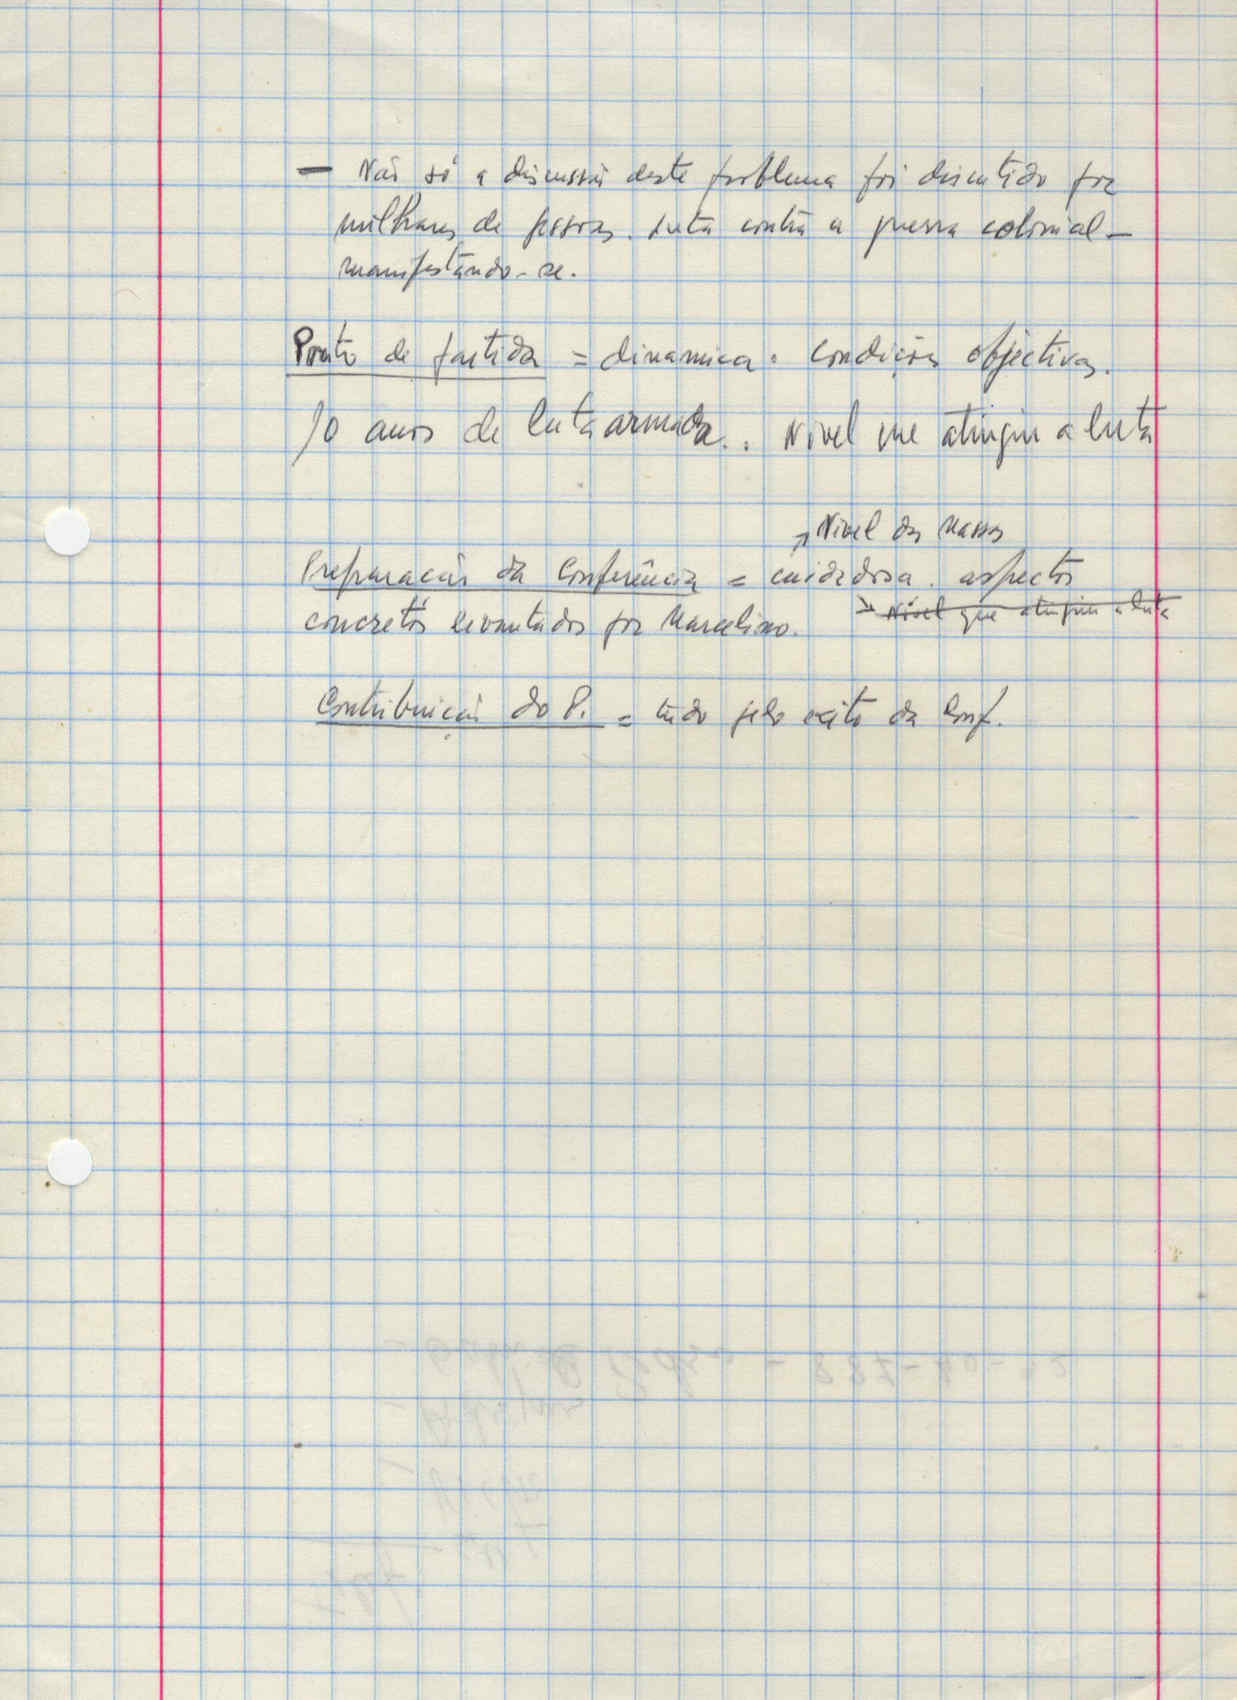 — Não só a discussão deste problema foi discutido por
milhares de pessoas. Luta contra a guerra colonial —
manifestando-se.
Ponto de partida = dinamica. Condições objectivas.
10 anos de luta armada.. Nivel que atingiu a luta
→ Nivel das Massas
Preparação da Conferência = cuidadosa. aspectos
→ Nivel que atingiu a luta
concretos levantados por Marcelino.
Contribuição do P. = tudo pelo exito da Conf.